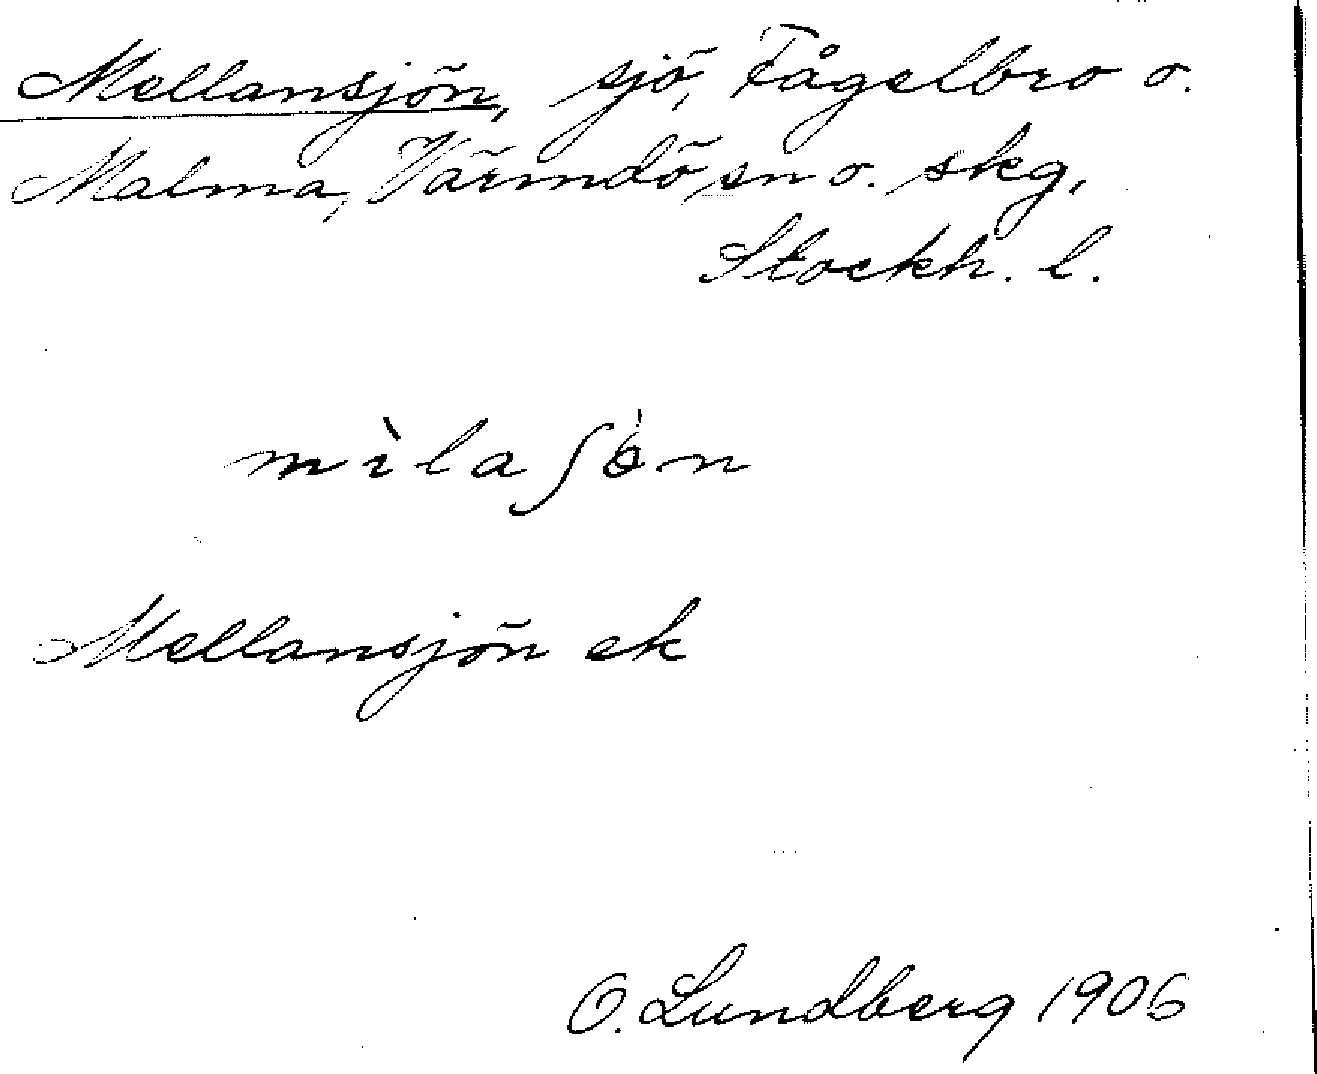 Mellansjön, sjö, Fågelbro o.
Malma, Värmdö sn o. skg,
Stockh. l.
mìlaʃón
Mellansjön ek
O. Lundberg 1906